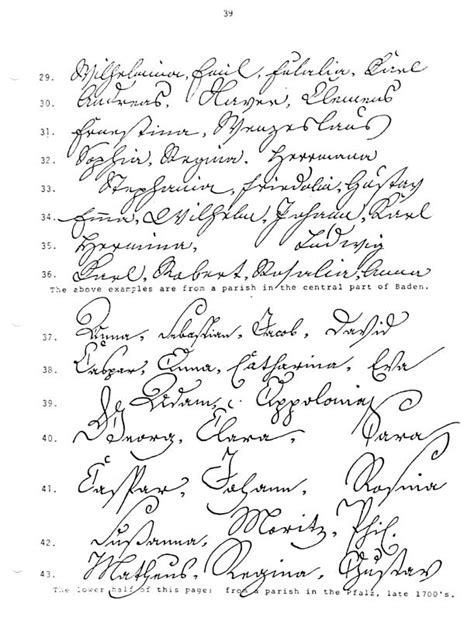 39
29. Wilhelmina, Emil, Eulalia, Carl
30. Andreas, Xaver, Clemens
31. Ernestina, Wenzeslaus
32. Sophia, Regina, Herrmann
33. Stephania, Friedolin, Gustav
34. Emma, Wilhelm, Johann, Karl
35. Hermina, Ludwig
36. Carl, Robert, Rosalia, Anna
The above examples are from a parish in the central part of Baden.
37. Anna, Sebastian, Jacob, David
38. Caspar, Anna, Catharina, Eva
39. Adam, Appolonia
40. Georg, Clara, Sara
41. Caspar, Johann, Rosina
42. Susanna, Moritz, Phil.
43. Matheus, Regina, Gustav
The lower half of this page: from a parish in the Pfalz, late 1700's.